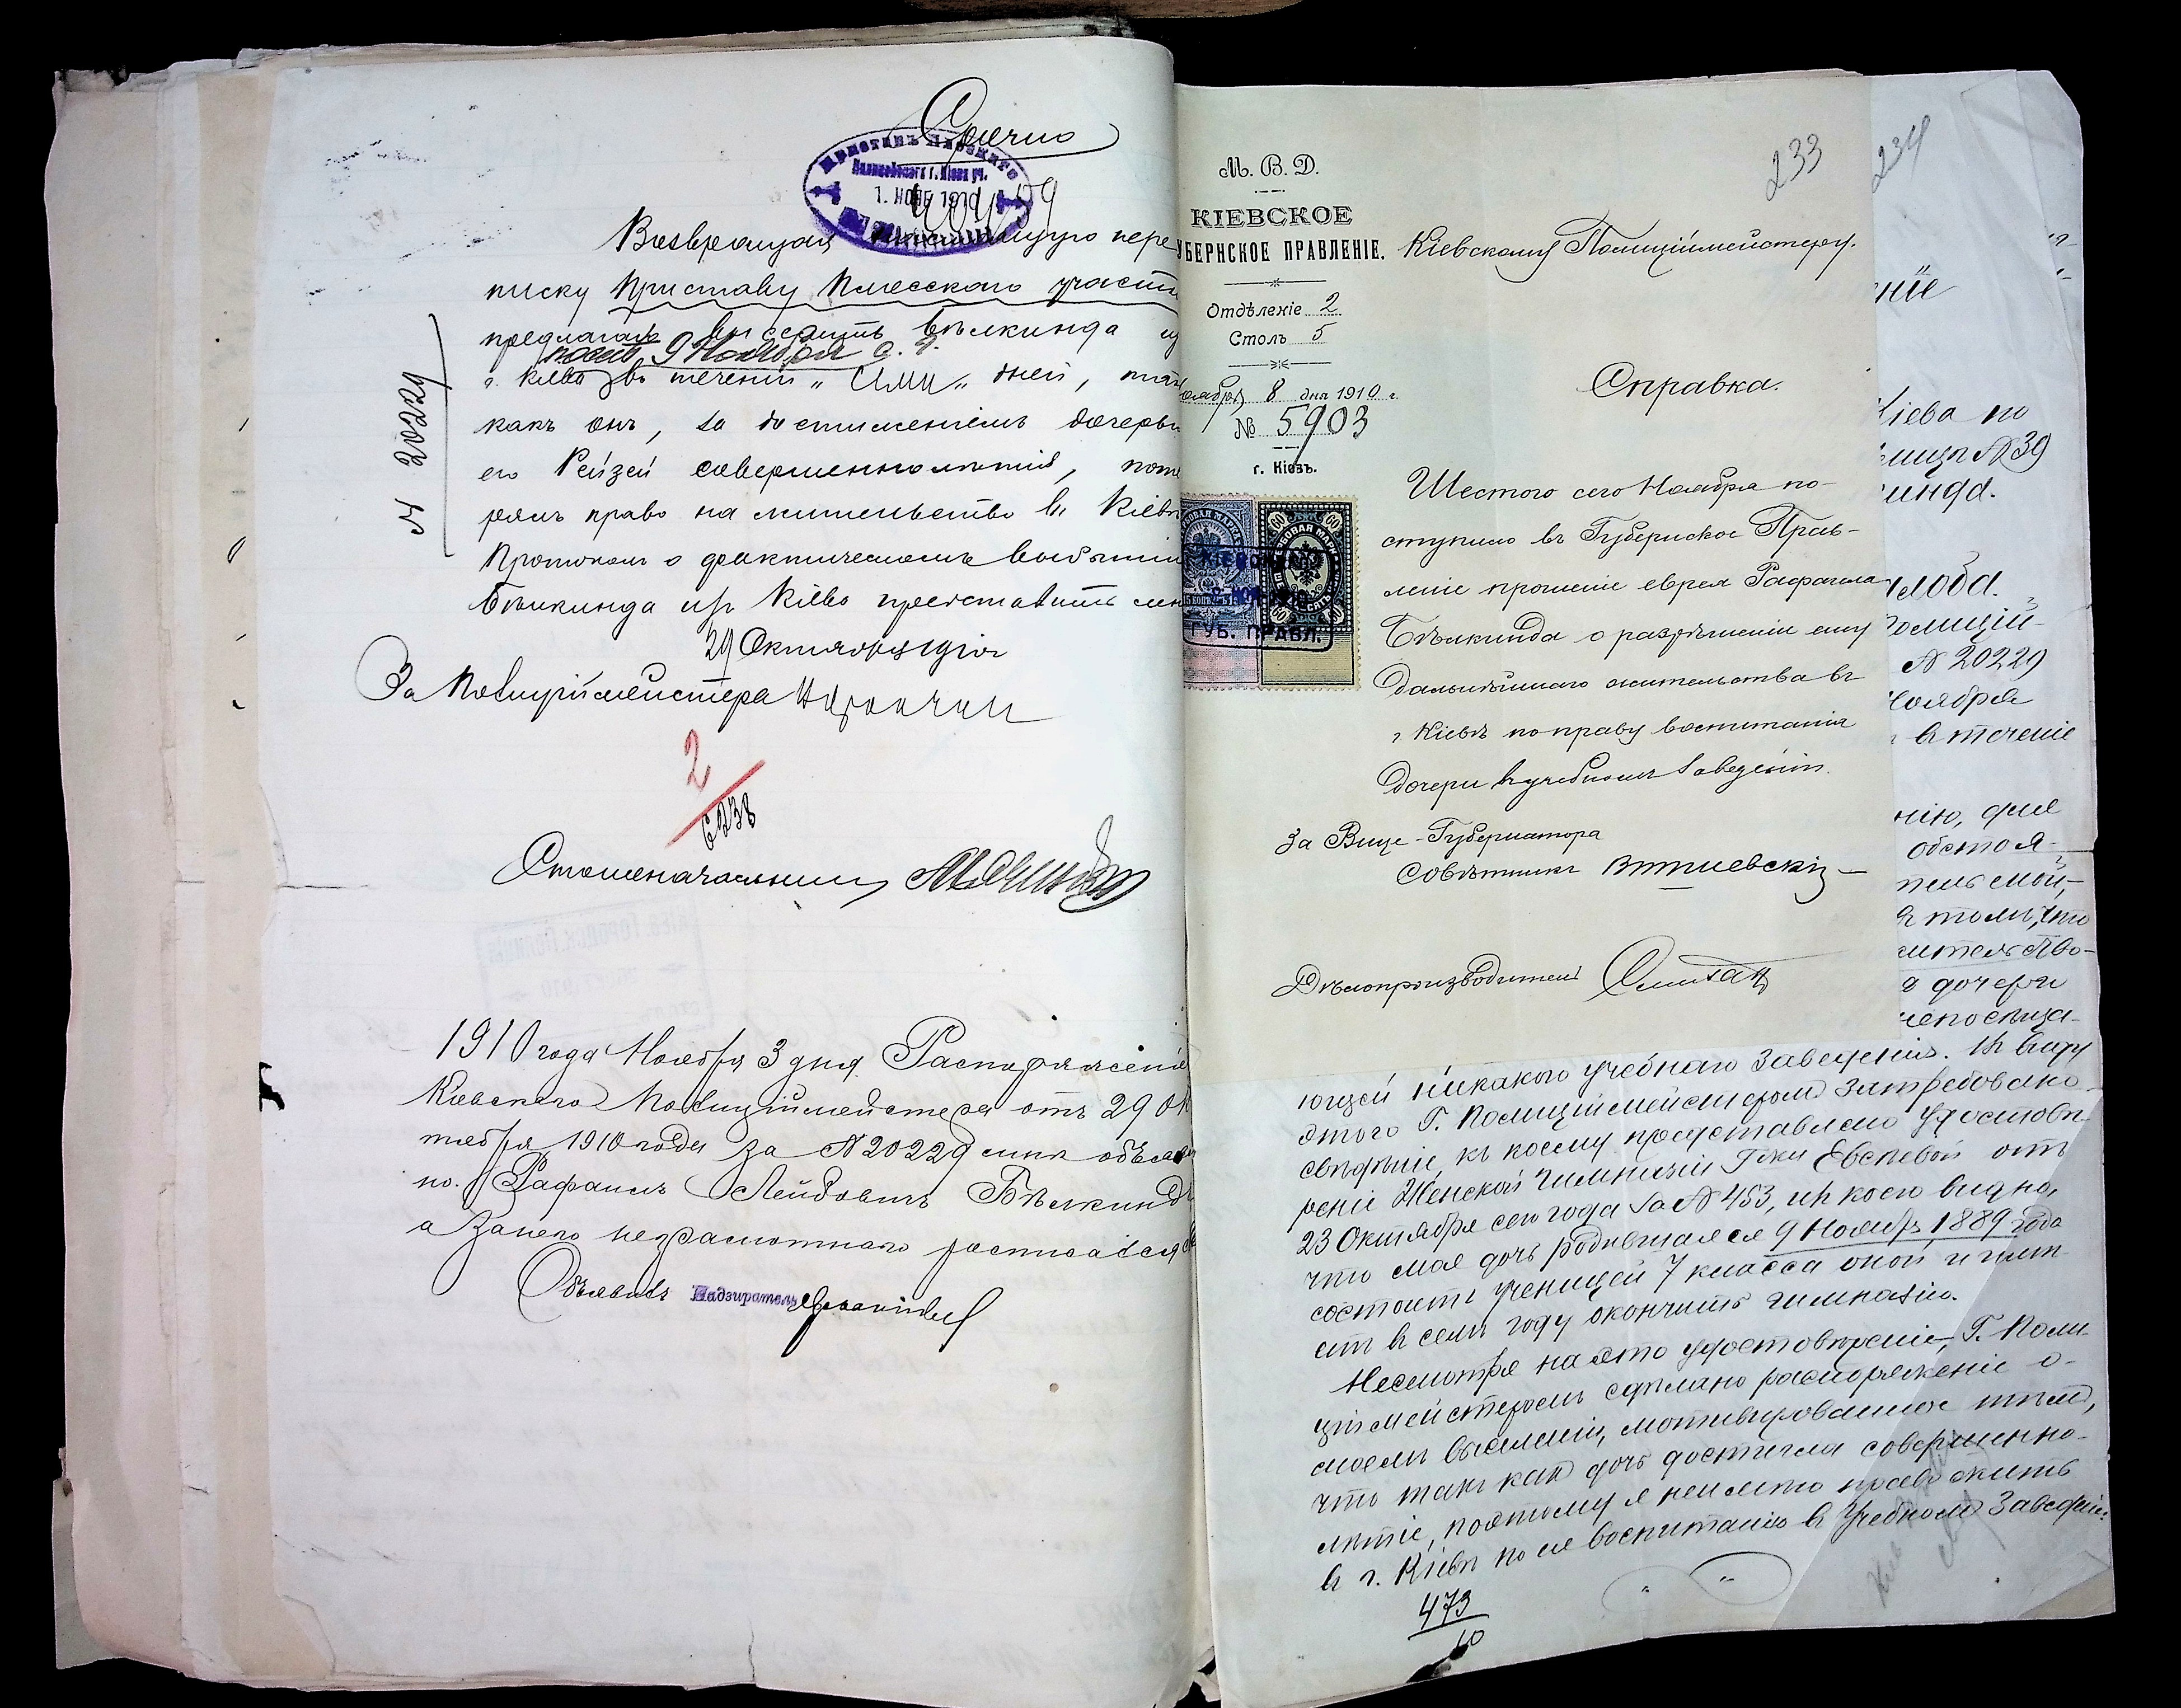 Срочно
Приставъ Плосскаго
Полицейскаго г. Кіева уч.
1. НОЯБ 1910
Возвращая настоящую пере
писку Приставу Плосскаго участк
предлагаю выселить Бѣлкинда из
послѣ 9 Ноября с. г.
г. Кіева въ теченіи „ Семи „ дней, так
какъ онъ, за достиженіемъ дочерью
его Рейзей совершеннолѣтія, поте
рялъ право на жительство въ Кіевѣ
Протоколъ о фактическомъ выбытіи
Бѣлкинда изъ Кіева представить мн
29 Октября 1910 г.
№ 20229
За Полиціймейстера
2
6238
Столоначальникъ
1910 года Ноября 3 дня. Распоряженіе
Кіевскаго Полиціймейстера отъ 29 Ок
тября 1910 года за № 20229 мнѣ объявле
но. Рафаилъ Лейбовичъ Бѣлкиндъ
а за него неграмотнаго росписался
Объявилъ Надзиратель
233
М. В. Д.
КІЕВСКОЕ
УБЕРНСКОЕ ПРАВЛЕНІЕ.
Отдѣленіе 2
Столъ 5
оября 8 дня 1910 г.
№ 5903
г. Кіевъ.
КІЕВСКОЕ
ГУБ. ПРАВЛ.
Кіевскому Полиціймейстеру.
Справка.
Шестого сего Ноября по-
ступило въ Губернское Прав-
леніе прошеніе еврея Рафаила
Бѣлкинда о разрѣшеніи ему
дальнѣйшаго жительства въ
г. Кіевѣ по праву воспитанія
дочери въ учебномъ заведеніи.
За Вице-Губернатора
Совѣтникъ
Дѣлопроизводитель
234
ніе
Кіева по
№ 39
кинда.
жалоба.
Полицій-
№ 20229
Ноября
въ теченіе
нію, для
обстоя-
тель мой,
въ томъ, что
жительство-
дочери
непосѣща-
ющей никакого учебнаго заведенія. Въ виду
этого Г. Полиціймейстеромъ затребовано
свѣдѣніе, къ коему представлено удостовѣ-
реніе Женской гимназіи Г-жи Евсѣевой отъ
23 Октября сего года за № 453, изъ коего видно,
что моя дочь родившаяся 9 Ноября 1889 года
состоитъ ученицей 7 класса оной и имѣ-
етъ въ семъ году окончить гимназію.
Несмотря на это удостовѣреніе, Г. Поли-
ціймейстеромъ сдѣлано распоряженіе о
моемъ выселеніи, мотивированное тѣмъ,
что такъ какъ дочь достигла совершенно-
лѣтіе, поэтому я неимѣю право жить
въ г. Кіевѣ по ея воспитанію въ Учебномъ Заведеніи
473
10